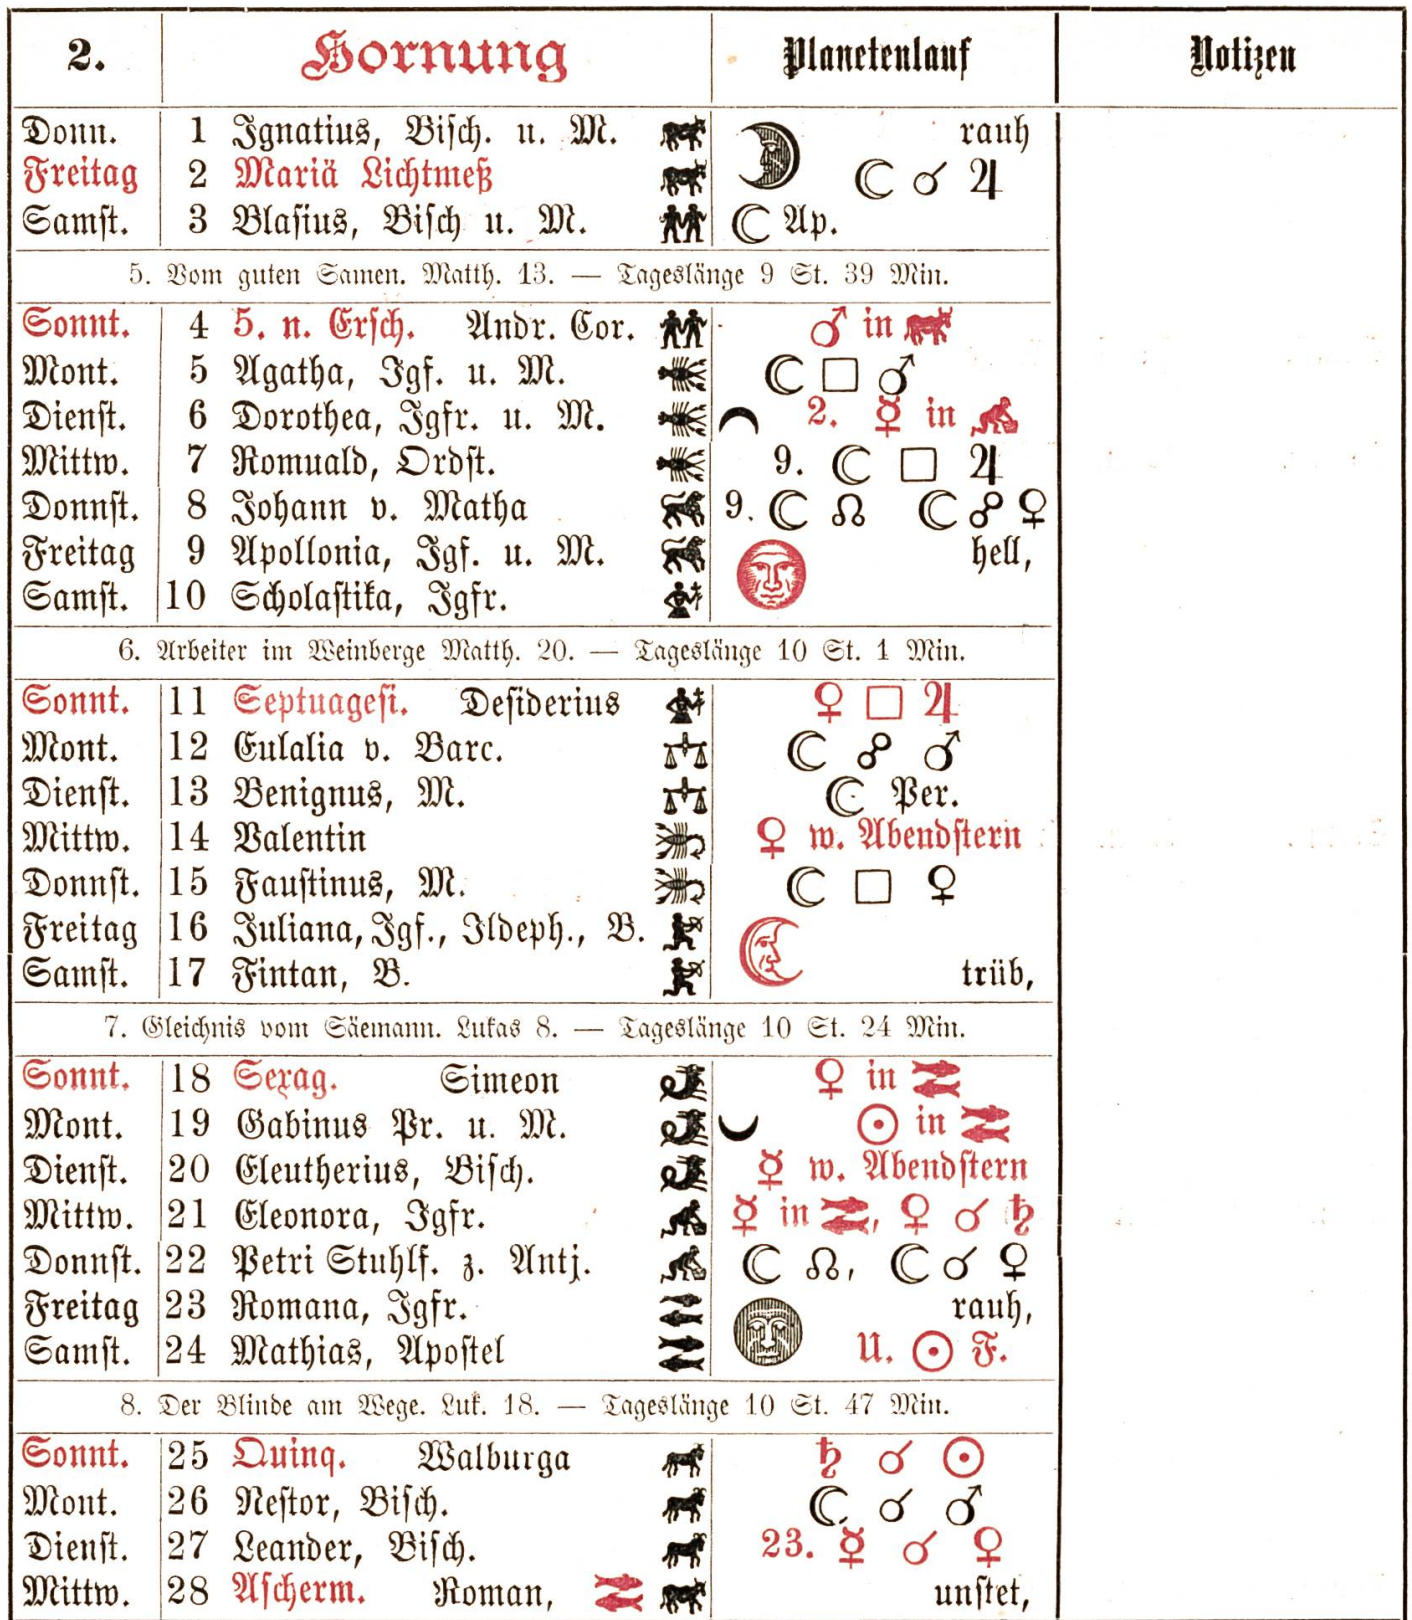 2. Hornung Planetenlauf Notizen
Donn. 1 Ignatius, Bisch. u. M. rauh
Freitag 2 Mariä Lichtmeß ☾ ☌ ♃
Samst. 3 Blasius, Bisch u. M. ☾ Ap.
5. Vom guten Samen. Matth. 13. — Tageslänge 9 St. 39 Min.
Sonnt. 4 5. n. Ersch. Andr. Cor. ♂ in
Mont. 5 Agatha, Igf. u. M. ☾ □ ♂
Dienst. 6 Dorothea, Igfr. u. M. 2. ☿ in
Mittw. 7 Romuald, Ordst. 9. ☾ □ ♃
Donnst. 8 Johann v. Matha 9. ☾ ☊ ☾ ☍ ♀
Freitag 9 Apollonia, Igf. u. M. hell,
Samst. 10 Scholastika, Igfr.
6. Arbeiter im Weinberge Matth. 20. — Tageslänge 10 St. 1 Min.
Sonnt. 11 Septuagesi. Desiderius ♀ □ ♃
Mont. 12 Eulalia v. Barc. ☾ ☍ ♂
Dienst. 13 Benignus, M. ☾ Per.
Mittw. 14 Valentin ♀ w. Abendstern
Donnst. 15 Faustinus, M. ☾ □ ♀
Freitag 16 Juliana, Igf., Ildeph., B.
Samst. 17 Fintan, B. trüb,
7. Gleichnis vom Säemann. Lukas 8. — Tageslänge 10 St. 24 Min.
Sonnt. 18 Sexag. Simeon ♀ in
Mont. 19 Gabinus Pr. u. M. ☉ in
Dienst. 20 Eleutherius, Bisch. ☿ w. Abendstern
Mittw. 21 Eleonora, Igfr. ☿ in , ♀ ☌ ♄
Donnst. 22 Petri Stuhlf. z. Antj. ☾ ☊, ☾ ☌ ♀
Freitag 23 Romana, Igfr. rauh,
Samst. 24 Mathias, Apostel U. ☉ F.
8. Der Blinde am Wege. Luk. 18. — Tageslänge 10 St. 47 Min.
Sonnt. 25 Quinq. Walburga ♄ ☌ ☉
Mont. 26 Nestor, Bisch. ☾ ☌ ♂
Dienst. 27 Leander, Bisch. 23. ☿ ☌ ♀
Mittw. 28 Ascherm. Roman, unstet,